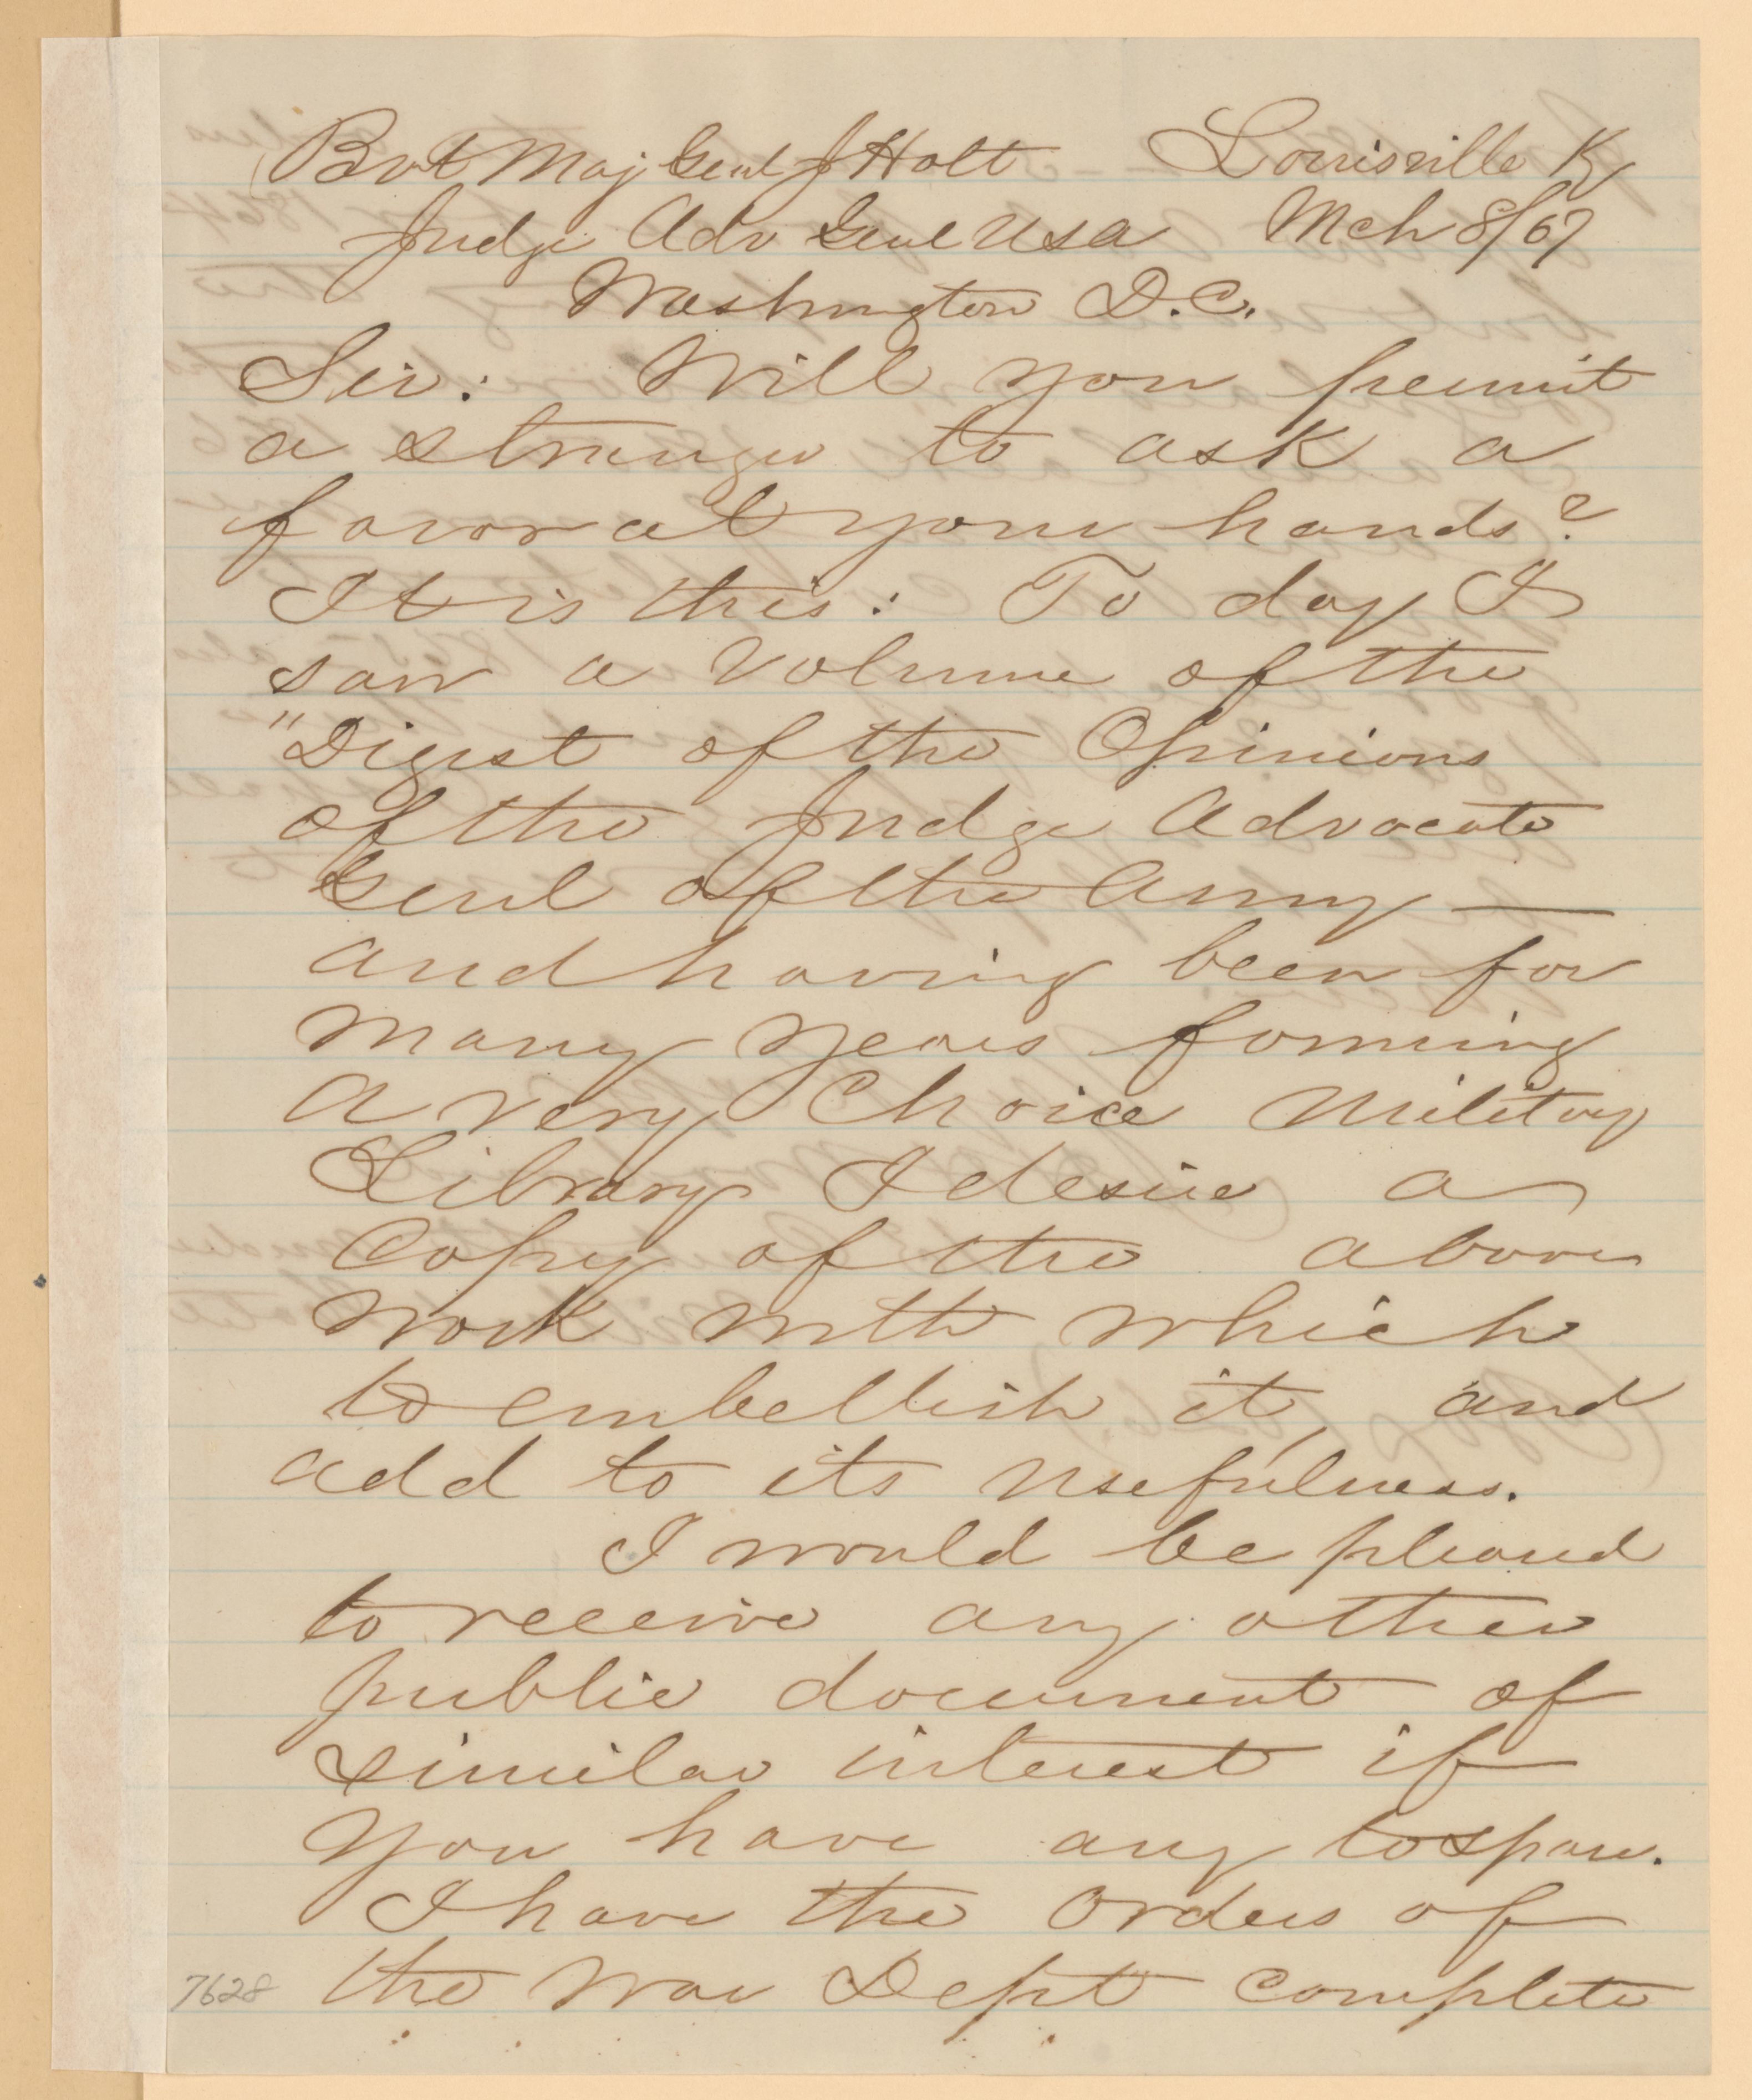 Bvt Maj Genl J Holt Louisville Ky
Judge Adv Genl USA Mch 8/67
Washington D.C.
Sir: Will you permit
a stranger to ask a
favor at your hands?
It is this: To day I
saw a Volume of the
"Digest of the Opinions
of the Judge Advocate
Genl of the Army —
and having been for
many years forming
a very Choice Military
Library I desire a
Copy of the above
work with which
to embellish it, and
add to its usefulness.
I would be pleased
to receive any other
public document of
similar interest if
you have any to spare.
I have the Orders of
the War Dept complete
7628